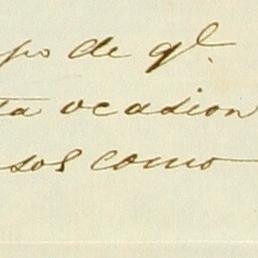 po de ql.
ta ocasion
sos como